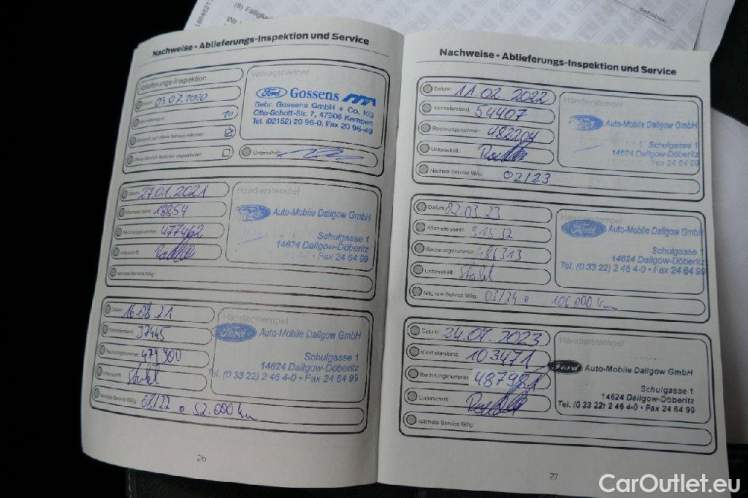 (9) Fälligkeit
Nachweise - Ablieferungs-Inspektion und Service
Ablieferungs-Inspektion
03.07.2020
Ford Gossens
Gebr. Gossens GmbH + Co. KG
Otto-Schott-Str. 7, 47906 Kempen
Tel. (02152) 20 96-0, Fax 20 96-49
Datum: 27.01.2021
18854
477462
Händlerstempel
Ford Auto-Mobile Dallgow GmbH
Schulgasse 1
14624 Dallgow-Döberitz
Fax 24 64 99
Nächste Service fällig:
16.08.21
37445
Händlerstempel
Ford Auto-Mobile Dallgow GmbH
Schulgasse 1
14624 Dallgow-Döberitz
Tel. (0 33 22) 2 46 4-0 • Fax 24 64 99
Nächste Service fällig: 08/22 o 52.000 km
26
Nachweise - Ablieferungs-Inspektion und Service
Datum: 11.02.2022
Kilometerstand: 54407
Rechnungsnummer: 482204
Unterschrift:
Händlerstempel
Ford Auto-Mobile Dallgow GmbH
Schulgasse 1
14624 Dallgow-Döberitz
Fax 24 64 99
Nächste Service fällig: 02/23
Datum: 02.03.23
Kilometerstand:
Rechnungsnummer: 486313
Unterschrift:
Ford Auto-Mobile Dallgow GmbH
Schulgasse 1
14624 Dallgow-Döberitz
Tel. (0 33 22) 2 46 4-0 • Fax 24 64 99
03/24 o 106.000 km
Datum: 2023
Kilometerstand: 103471
Rechnungsnummer: 487981
Unterschrift:
Händlerstempel
Ford Auto-Mobile Dallgow GmbH
Schulgasse 1
14624 Dallgow-Döberitz
Tel. (0 33 22) 2 46 4-0 • Fax 24 64 99
Nächste Service fällig:
27
CarOutlet.eu